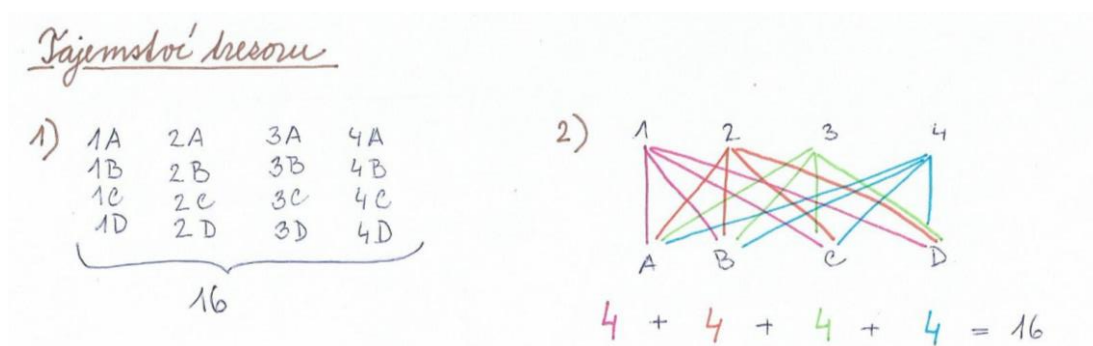 Tajemství tresoru
1) 1A 2A 3A 4A
1B 2B 3B 4B
1C 2C 3C 4C
1D 2D 3D 4D
16
2) 1 2 3 4
A B C D
4 + 4 + 4 + 4 = 16